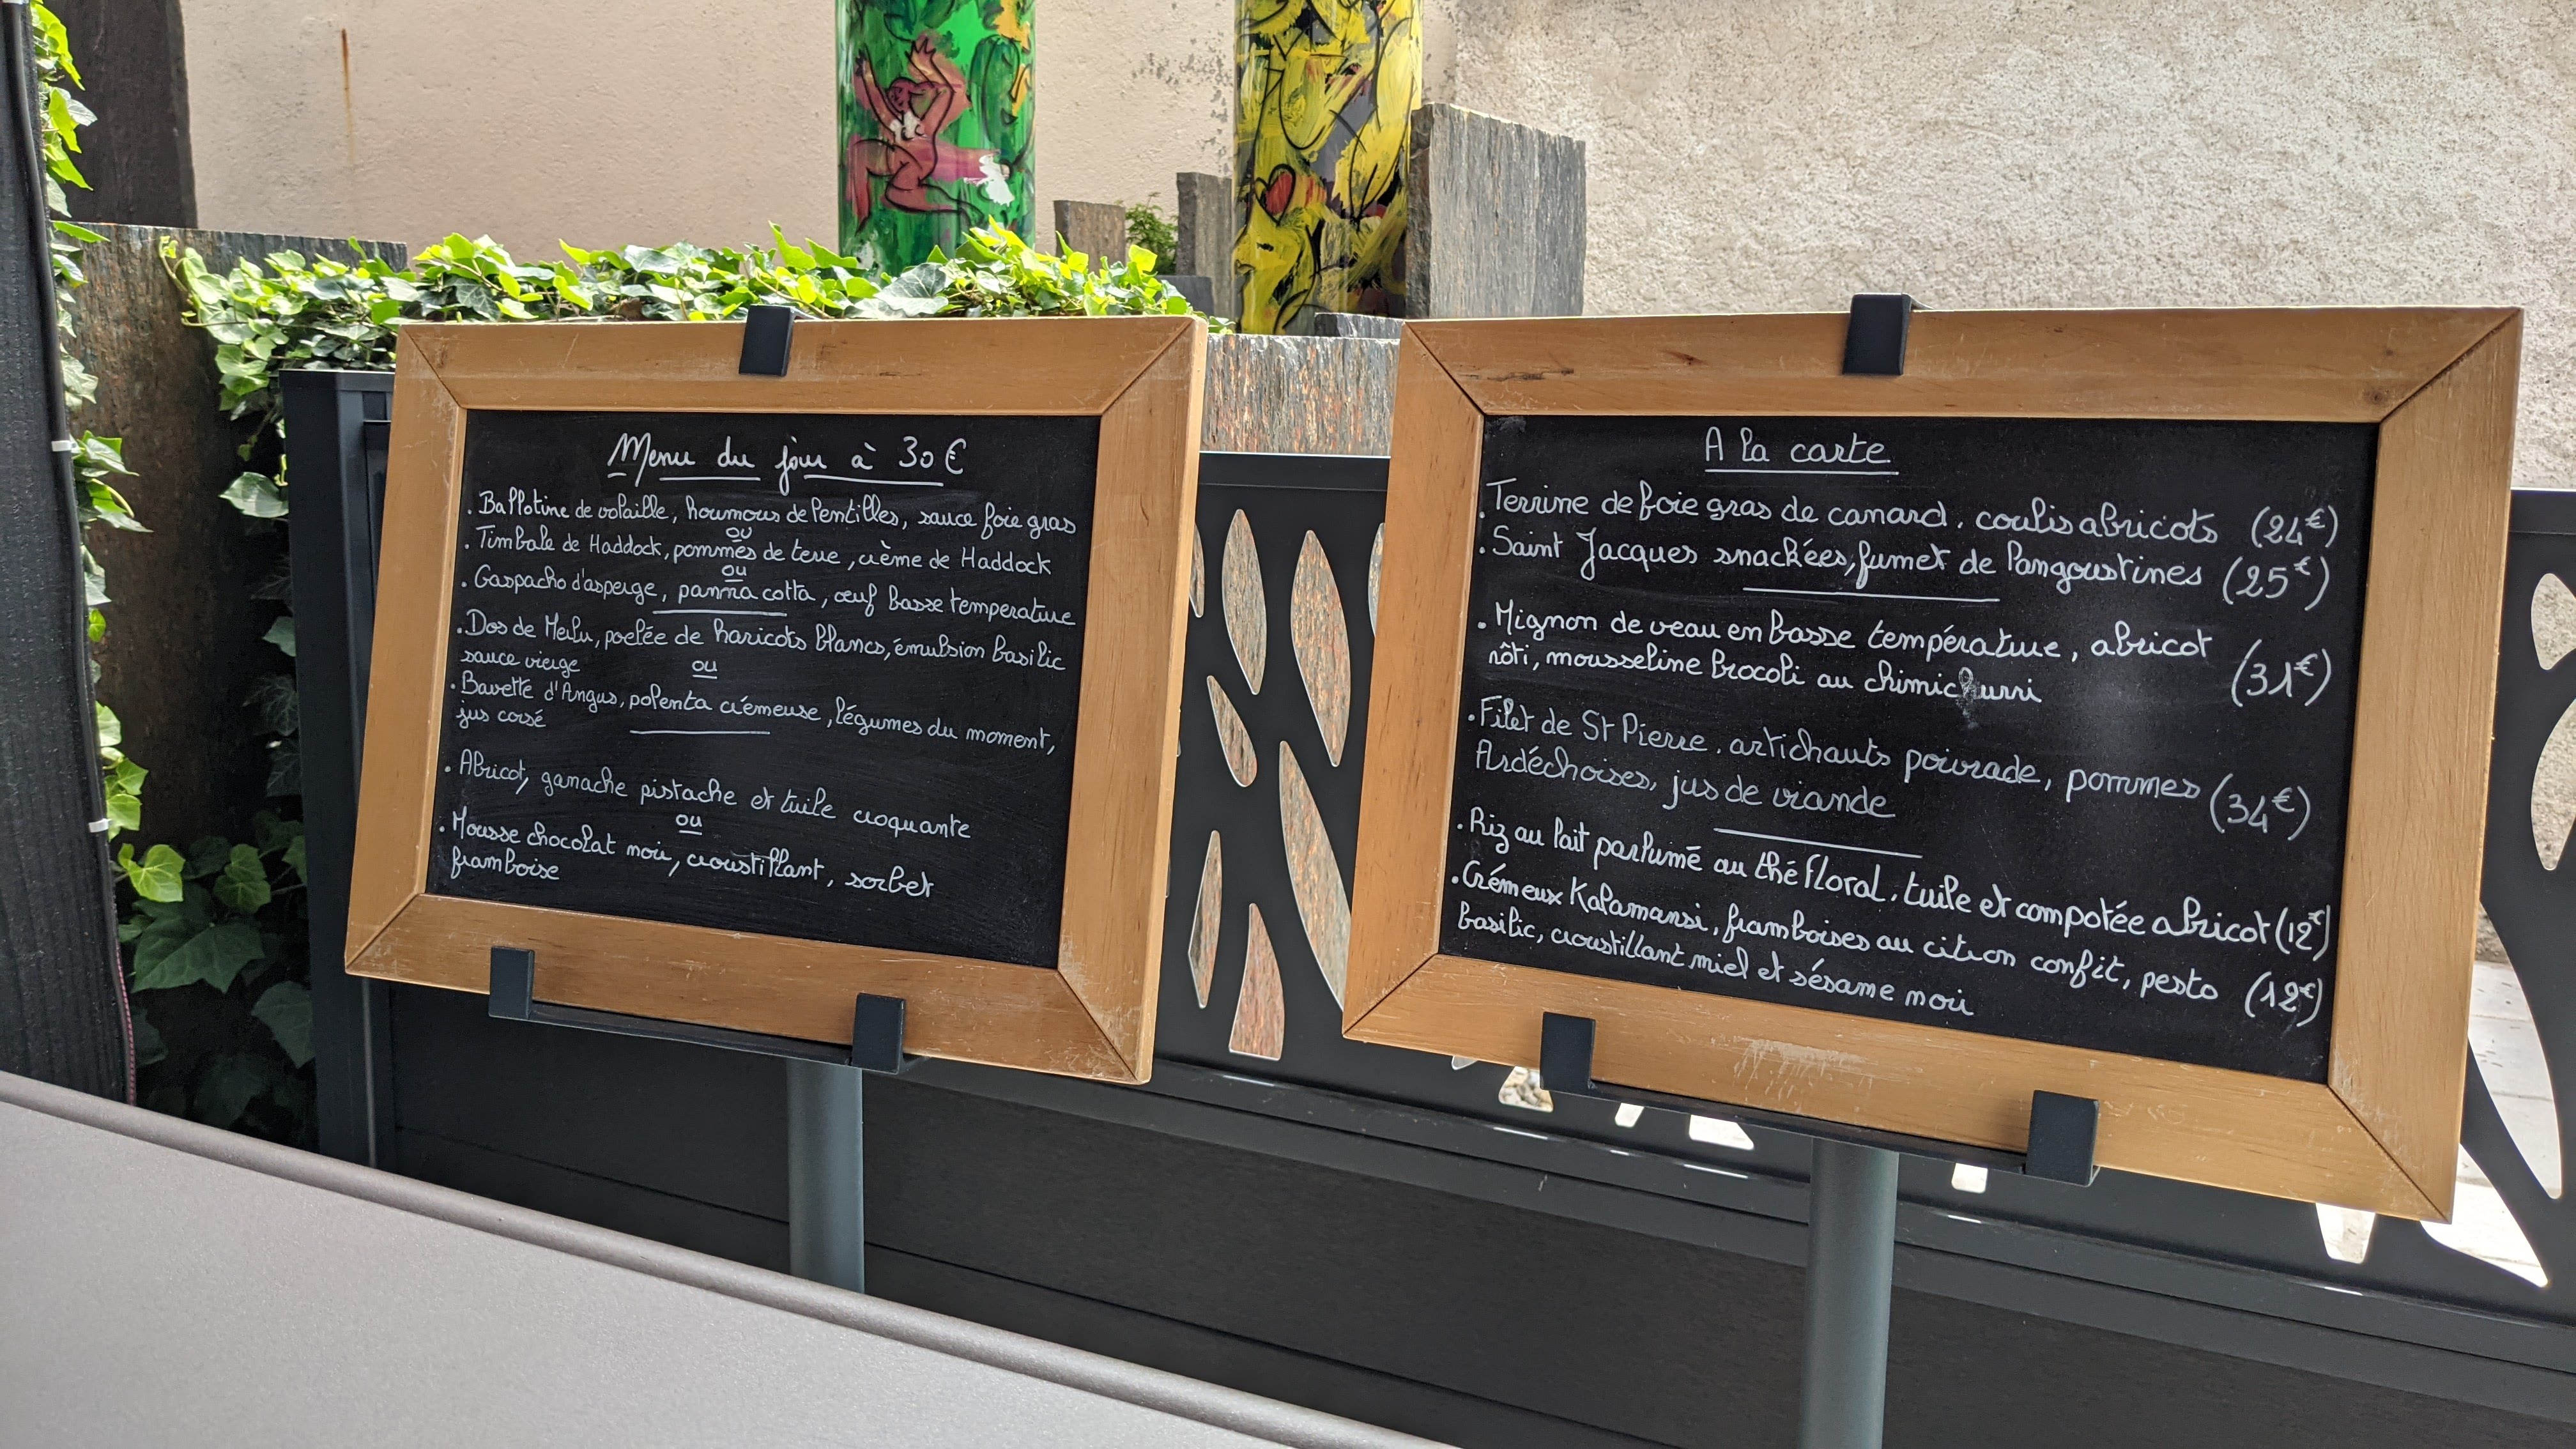 Menu du jour à 30€
. Ballotine de volaille, houmous de lentilles, sauce foie gras
ou
. Timbale de Haddock, pommes de terre, crème de Haddock
ou
. Gaspacho d'asperge, panna cotta, œuf basse temperature
. Dos de Merlu, poelée de haricots blancs, émulsion basilic
sauce vierge
ou
. Bavette d'Angus, polenta crémeuse, légumes du moment,
jus corsé
. Abricot, ganache pistache et tuile croquante
ou
. Mousse chocolat noir, croustillant, sorbet
framboise
A la carte
. Terrine de foie gras de canard, coulis abricots (24€)
. Saint Jacques snackées, fumet de langoustines (25€)
. Mignon de veau en basse température, abricot
rôti, mousseline brocoli au chimichurri (31€)
. Filet de St Pierre, artichauts poivrade, pommes
Ardéchoises, jus de viande (34€)
. Riz au lait parfumé au thé floral, tuile et compotée abricot (12€)
. Crémeux Kalamansi, framboises au citron confit, pesto
basilic, croustillant miel et sésame noir (12€)